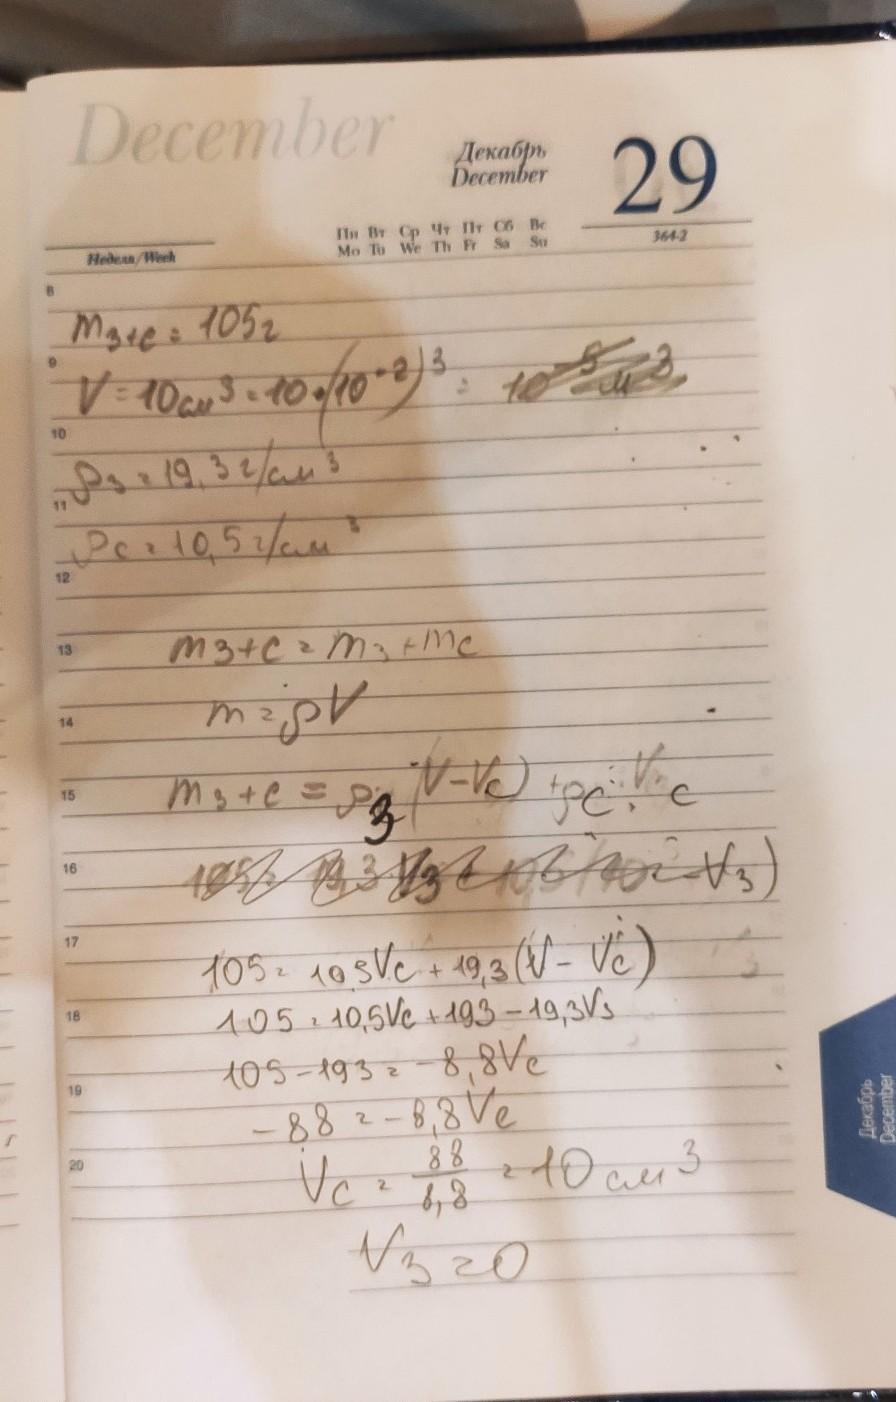 December
Декабрь
December
29
Пн Вт Ср Чт Пт Сб Вс
Mo Tu We Th Fr Sa Su
364-2
Неделя/Week
8
m з+с = 105г
9
V = 10см³ = 10·(10⁻²)³ = 10⁻⁵ м³
10
ρз = 19,3г/см³
11
ρс = 10,5г/см³
12
13 mз+с = mз + mс
14 m = ρV
15 mз+с = ρз (V-Vс) + ρс · Vс
16 105 = 19,3 Vз + 10,5 (10 - Vз)
17
105 = 10,5Vс + 19,3(V - Vс)
18 105 = 10,5Vс + 193 - 19,3Vз
105 - 193 = -8,8Vс
19
-88 = -8,8Vс
20 Vс = 88/8,8 = 10 см³
Vз = 0
Декабрь
December